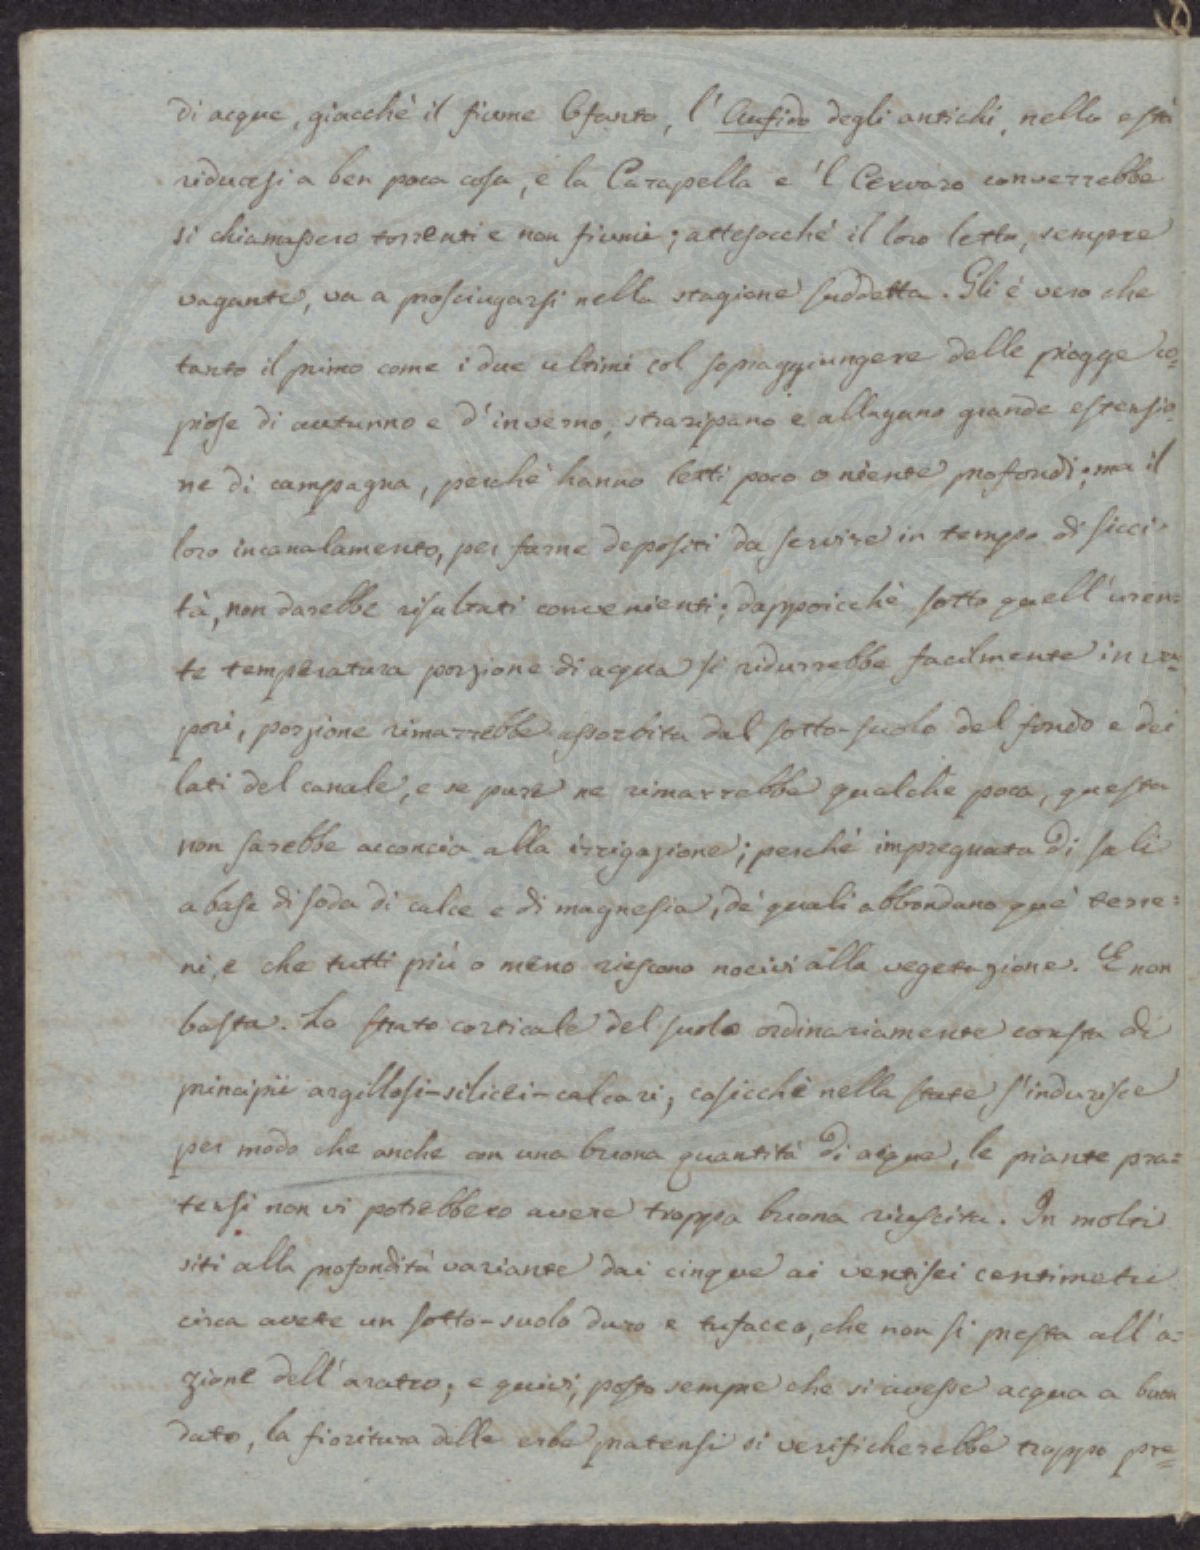 di acque, giacchè il fiume Ofanto, l'Aufido degli antichi, nella està
riducesi a ben poca cosa, e la Carapella e 'l Cervaro converrebbe
si chiamassero torrenti e non fiumi; attesocchè il loro letto, sempre
vagante, va a prosciugarsi nella stagione suddetta. Gli è vero che
tanto il primo come i due ultimi col sopraggiungere delle piogge co=
piose di autunno e d'inverno, straripano e allagano grande estensio=
ne di campagna, perchè hanno letti poco o niente profondi; ma il
loro incanalamento, per farne depositi da servire in tempo di sicci=
tà, non darebbe risultati convenienti; dappoicchè sotto quell'uren=
te temperatura porzione di acqua si ridurrebbe facilmente in va=
pori, porzione rimarrebbe assorbita dal sotto-suolo del fondo e dei
lati del canale, e se pure ne rimarrebbe qualche poca, questa
non sarebbe acconcia alla irrigazione; perchè impregnata di sali
a base di soda di calce e di magnesia, de' quali abbondano que' terre=
ni, e che tutti più o meno riescono nocivi alla vegetazione. E non
basta. Lo strato corticale del suolo ordinariamente consta di
principii argillosi-silicei-calcari; casicchè nella state s'indurisce
per modo che anche con una buona quantità di acque, le piante pra=
tensi non vi potrebbero avere troppa buona riuscita. In molti
siti alla profondità variante dai cinque ai ventisei centimetri
circa avete un sotto-suolo duro e tufaceo, che non si presta all'a=
zione dell'aratro; e quivi, posto sempre che si avesse acqua a buon
dato, la fioritura delle erbe pratensi si verificherebbe troppo pre=